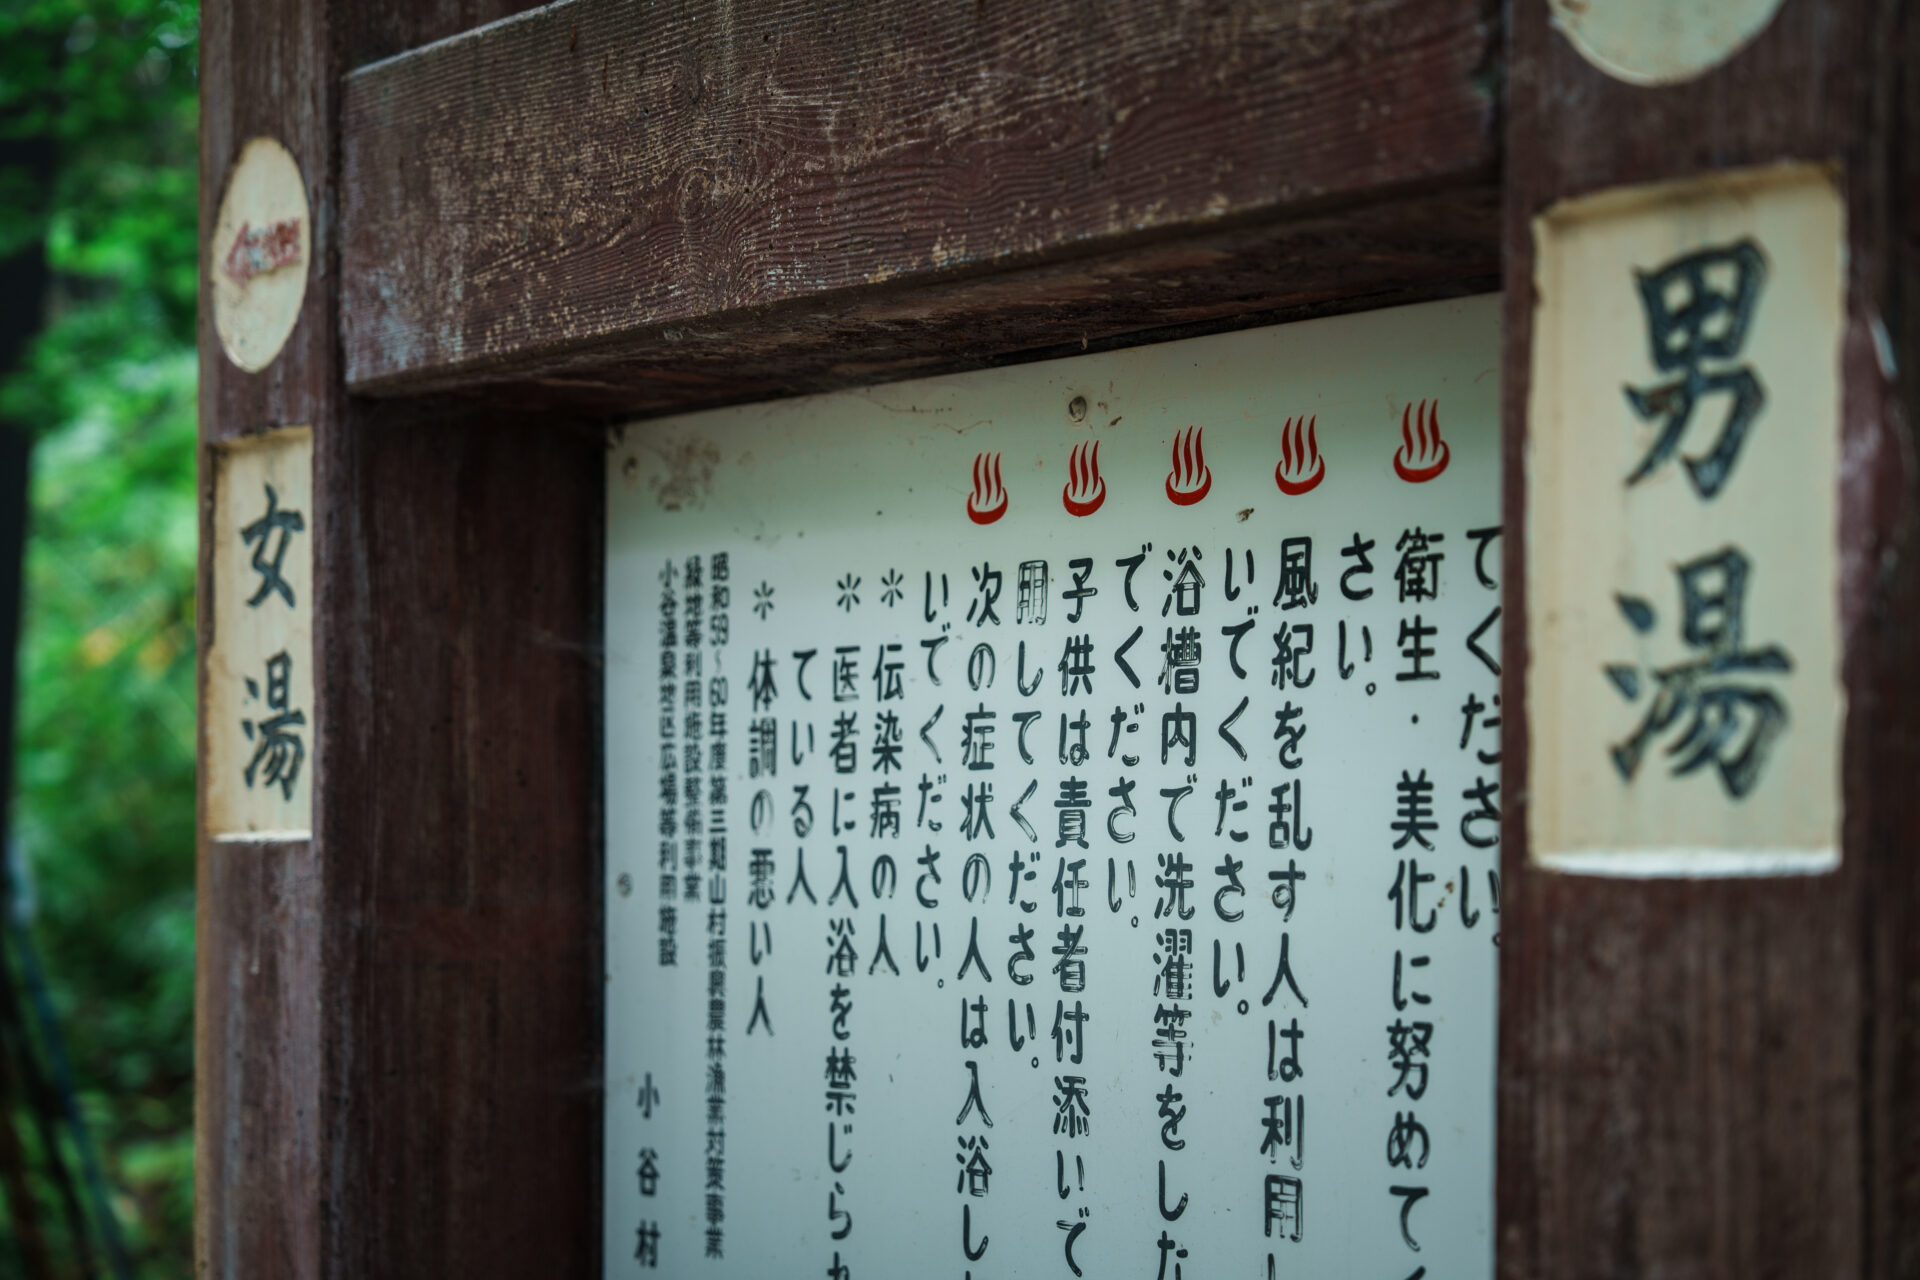 男湯
てください。
衛生・美化に努めてく
さい。
風紀を乱す人は利用し
いでください。
浴槽内で洗濯等をした
でください。
子供は責任者付添いで
用してください。
次の症状の人は入浴し
いでください。
＊伝染病の人
＊医者に入浴を禁じられ
ている人
＊体調の悪い人
昭和59〜60年度第三期山村振興農林漁業対策事業
緑地等利用施設整備事業
小谷温泉地区広場等利用施設
小谷村
女湯